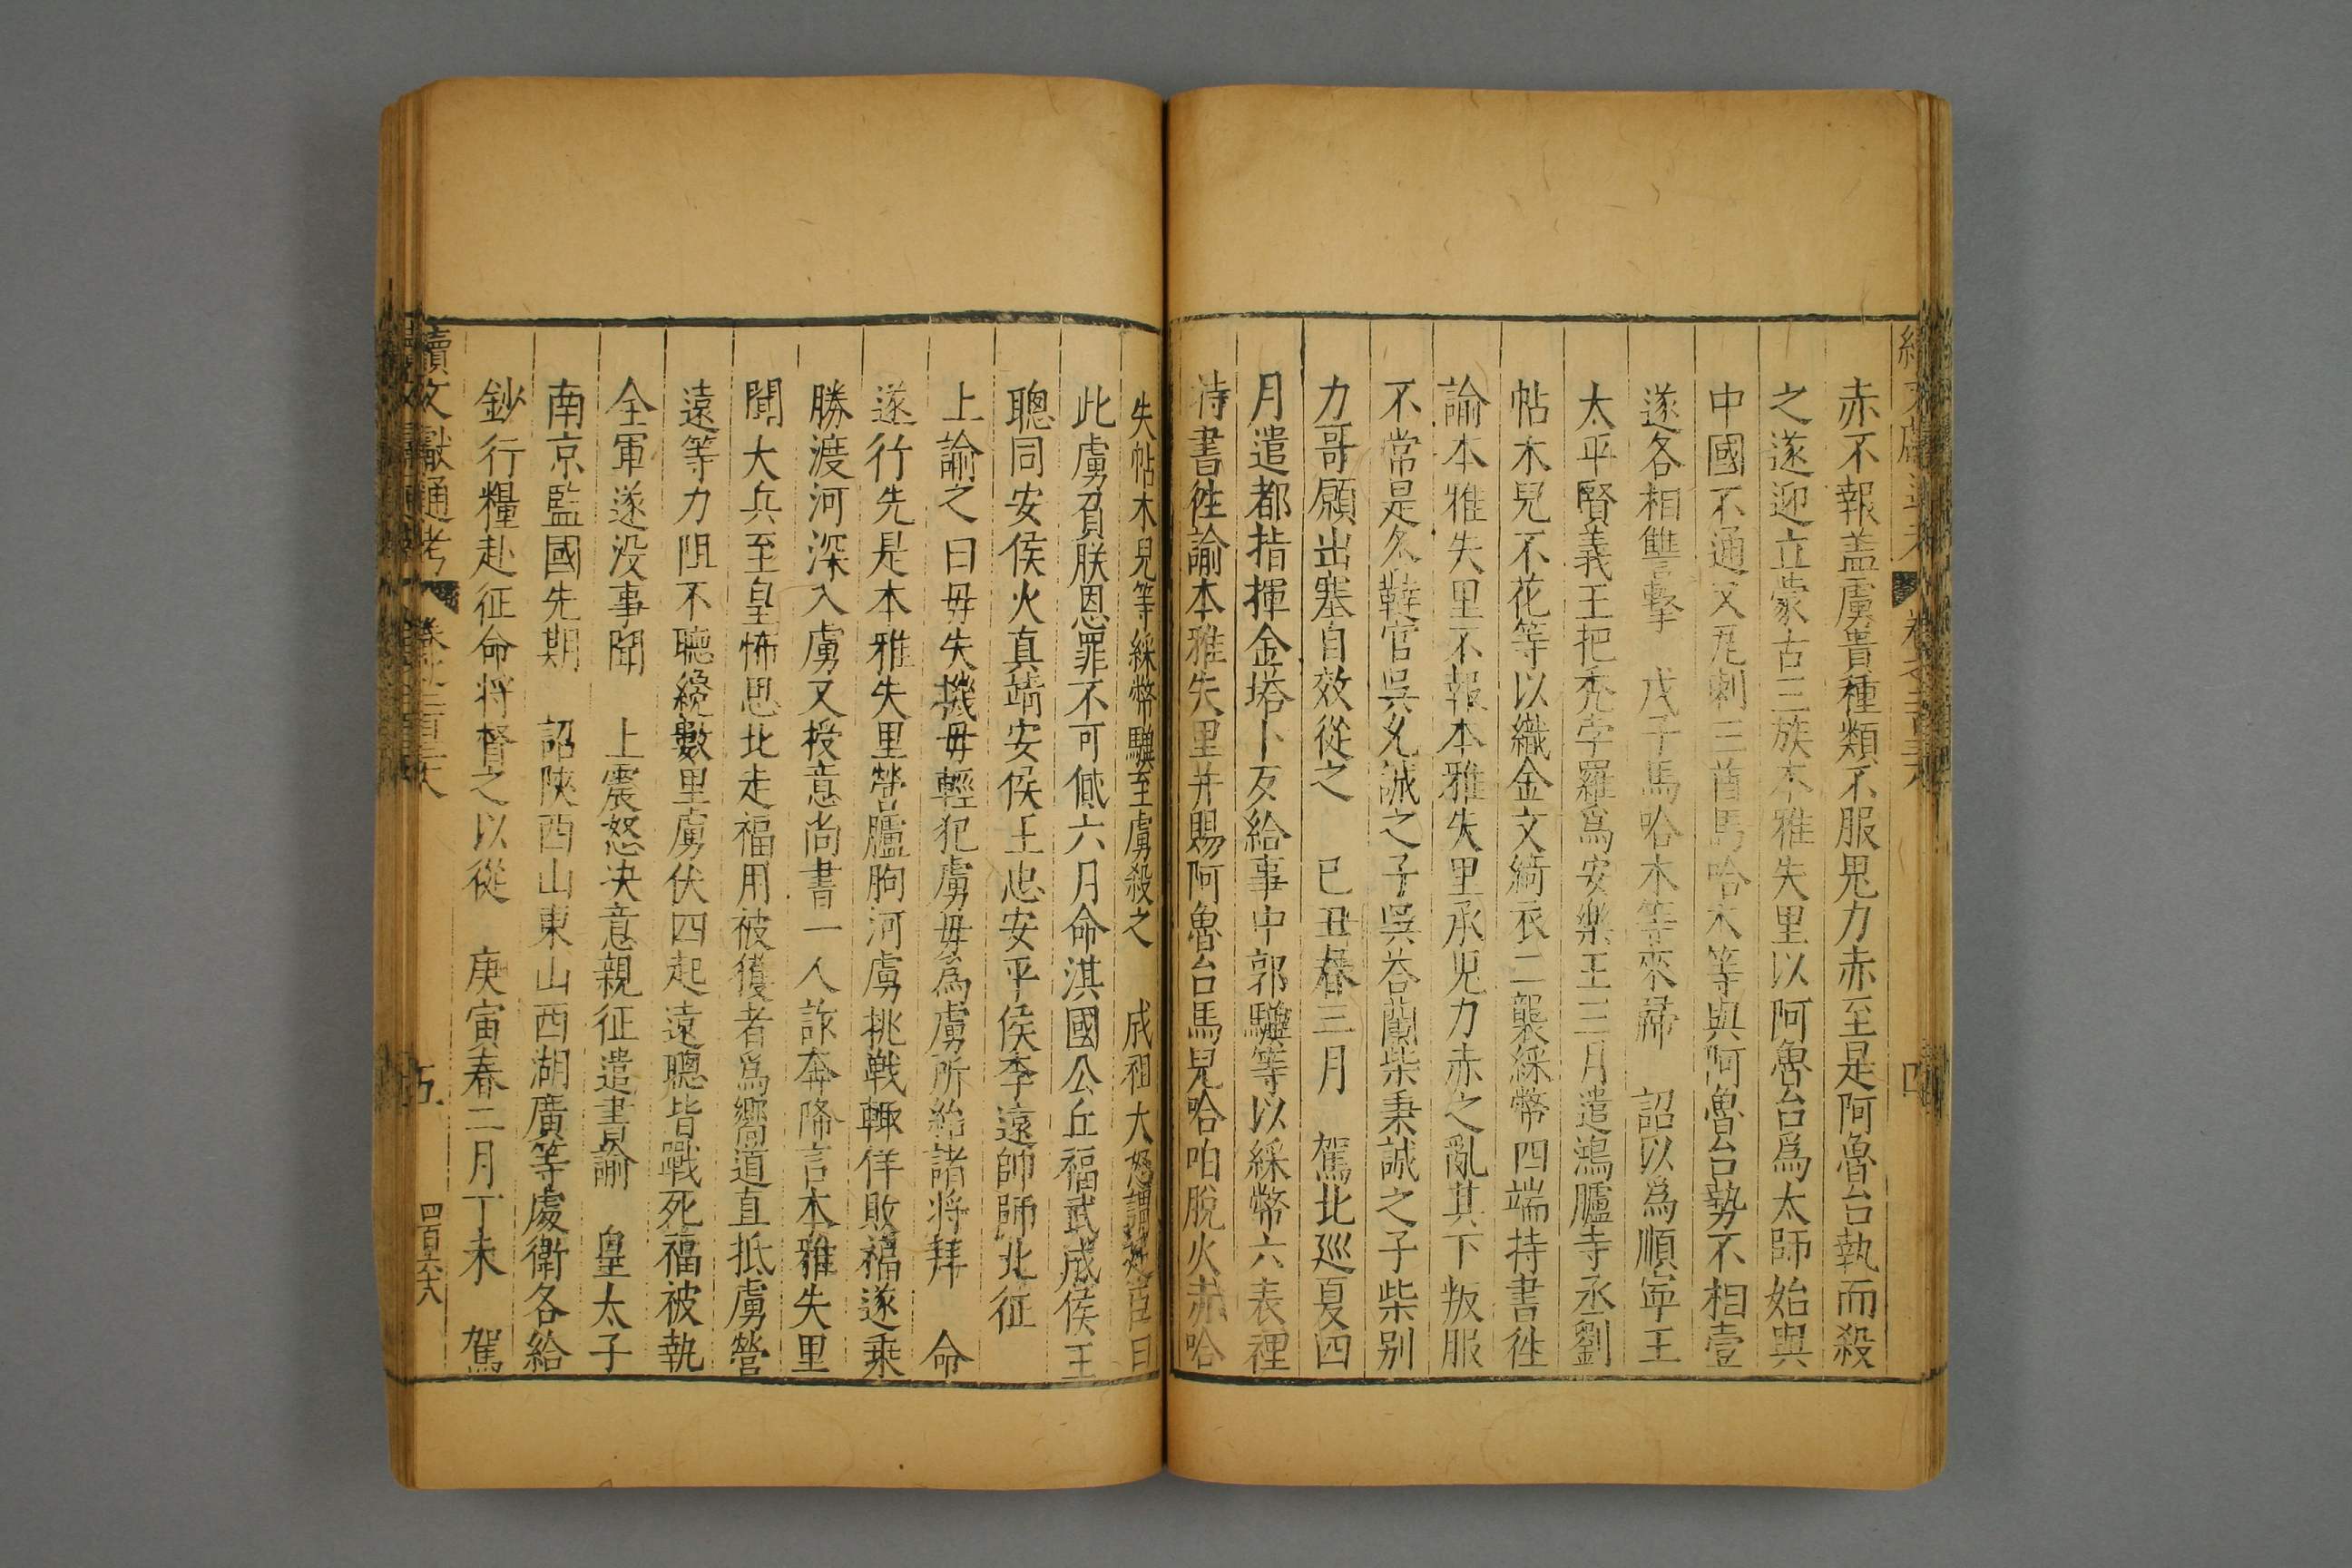 赤不報盖虜貴種類不服鬼力赤至是阿魯台執而殺
之遂迎立蒙古三族本雅失里以阿魯台爲太師始與
中國不通又瓦剌三酋馬哈木等與阿魯台勢不相壹
遂各相讐擊　戊子馬哈木等來歸　詔以爲順寜王
太平賢義王把禿孛羅爲安樂王三月遣鴻臚寺丞劉
帖木兒不花等以織金文綺衣二襲綵幣四端持書徃
諭本雅失里不報本雅失里承鬼力赤之亂其下叛服
不常是冬韃官吳允誠之子吳荅蘭柴秉誠之子柴别
力哥願出塞自效從之　巳丑春三月　駕北廵夏四
月遣都指揮金塔卜歹給事中郭驥等以綵幣六表裡
持書徃諭本雅失里并賜阿魯台馬兒哈咱脫火赤哈
失帖木兒等綵幣驥至虜殺之　成祖大怒謂廷臣曰
此虜負朕恩罪不可㑣六月命淇國公丘福武成侯王
聰同安侯火真靖安侯王忠安平侯李遠帥師北征
上諭之曰毋失機毋輕犯虜毋爲虜所紿諸將拜　命
遂行先是本雅失里營臚朐河虜挑戰輙佯敗福遂乗
勝渡河深入虜又授意尚書一人詐奔降言本雅失里
聞大兵至皇怖思北走福用被獲者爲嚮道直抵虜營
遠等力阻不聽纔數里虜伏四起遠聰皆戰死福被執
全軍遂没事聞　上震怒决意親征遣書諭　皇太子
南京監國先期　詔陝西山東山西湖廣等處衛各給
鈔行糧赴征命將督之以從　庚寅春二月丁未　駕
續文獻通考
五
四百六十八